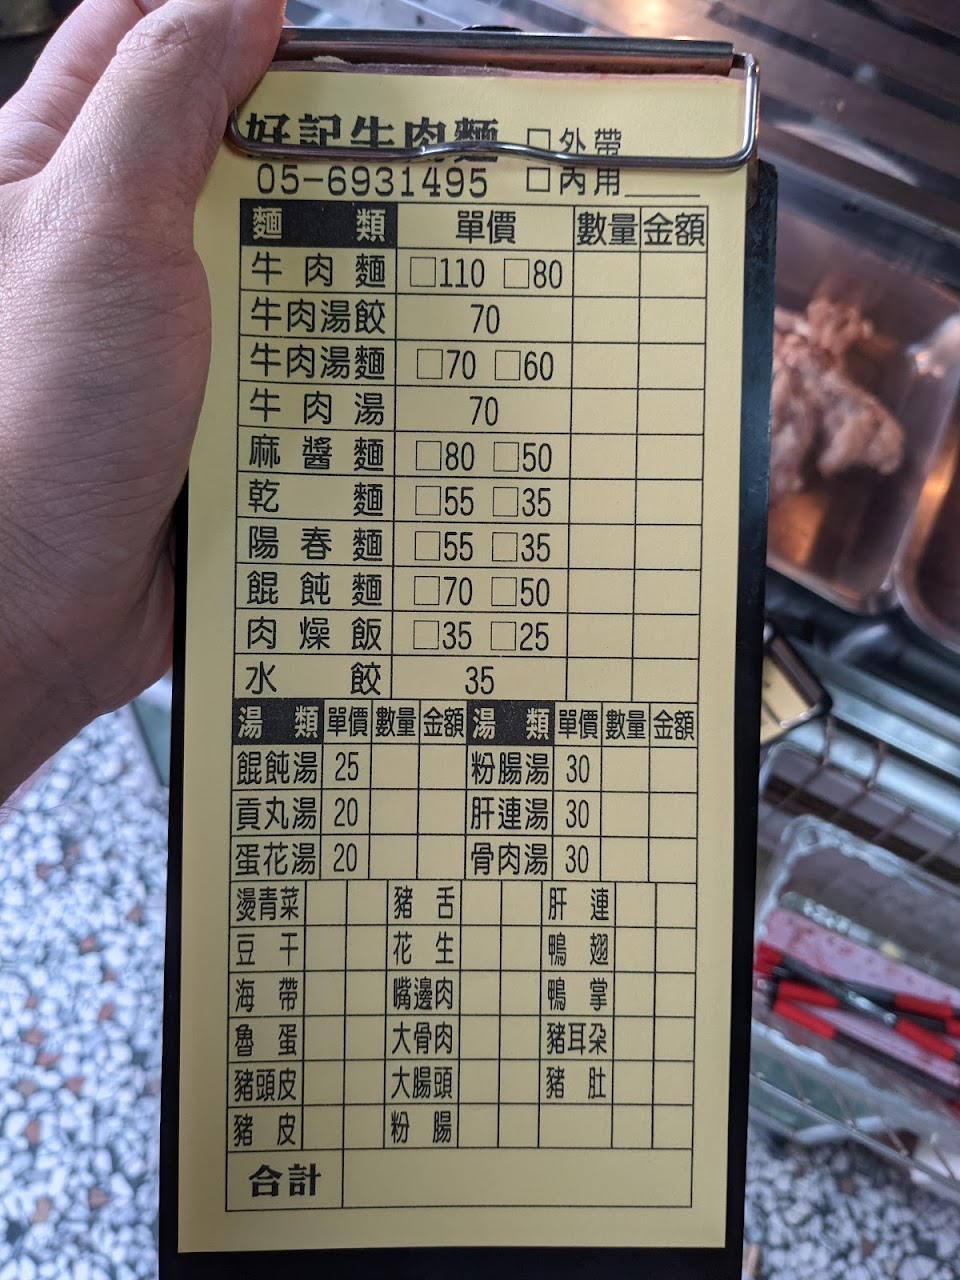 好記牛肉麵 □外帶
05-6931495 □內用____
麵類 單價 數量 金額
牛肉麵 □110 □80
牛肉湯餃 70
牛肉湯麵 □70 □60
牛肉湯 70
麻醬麵 □80 □50
乾麵 □55 □35
陽春麵 □55 □35
餛飩麵 □70 □50
肉燥飯 □35 □25
水餃 35
湯類 單價 數量 金額 湯類 單價 數量 金額
餛飩湯 25 粉腸湯 30
貢丸湯 20 肝連湯 30
蛋花湯 20 骨肉湯 30
燙青菜 豬舌 肝連
豆干 花生 鴨翅
海帶 嘴邊肉 鴨掌
魯蛋 大骨肉 豬耳朵
豬頭皮 大腸頭 豬肚
豬皮 粉腸
合計